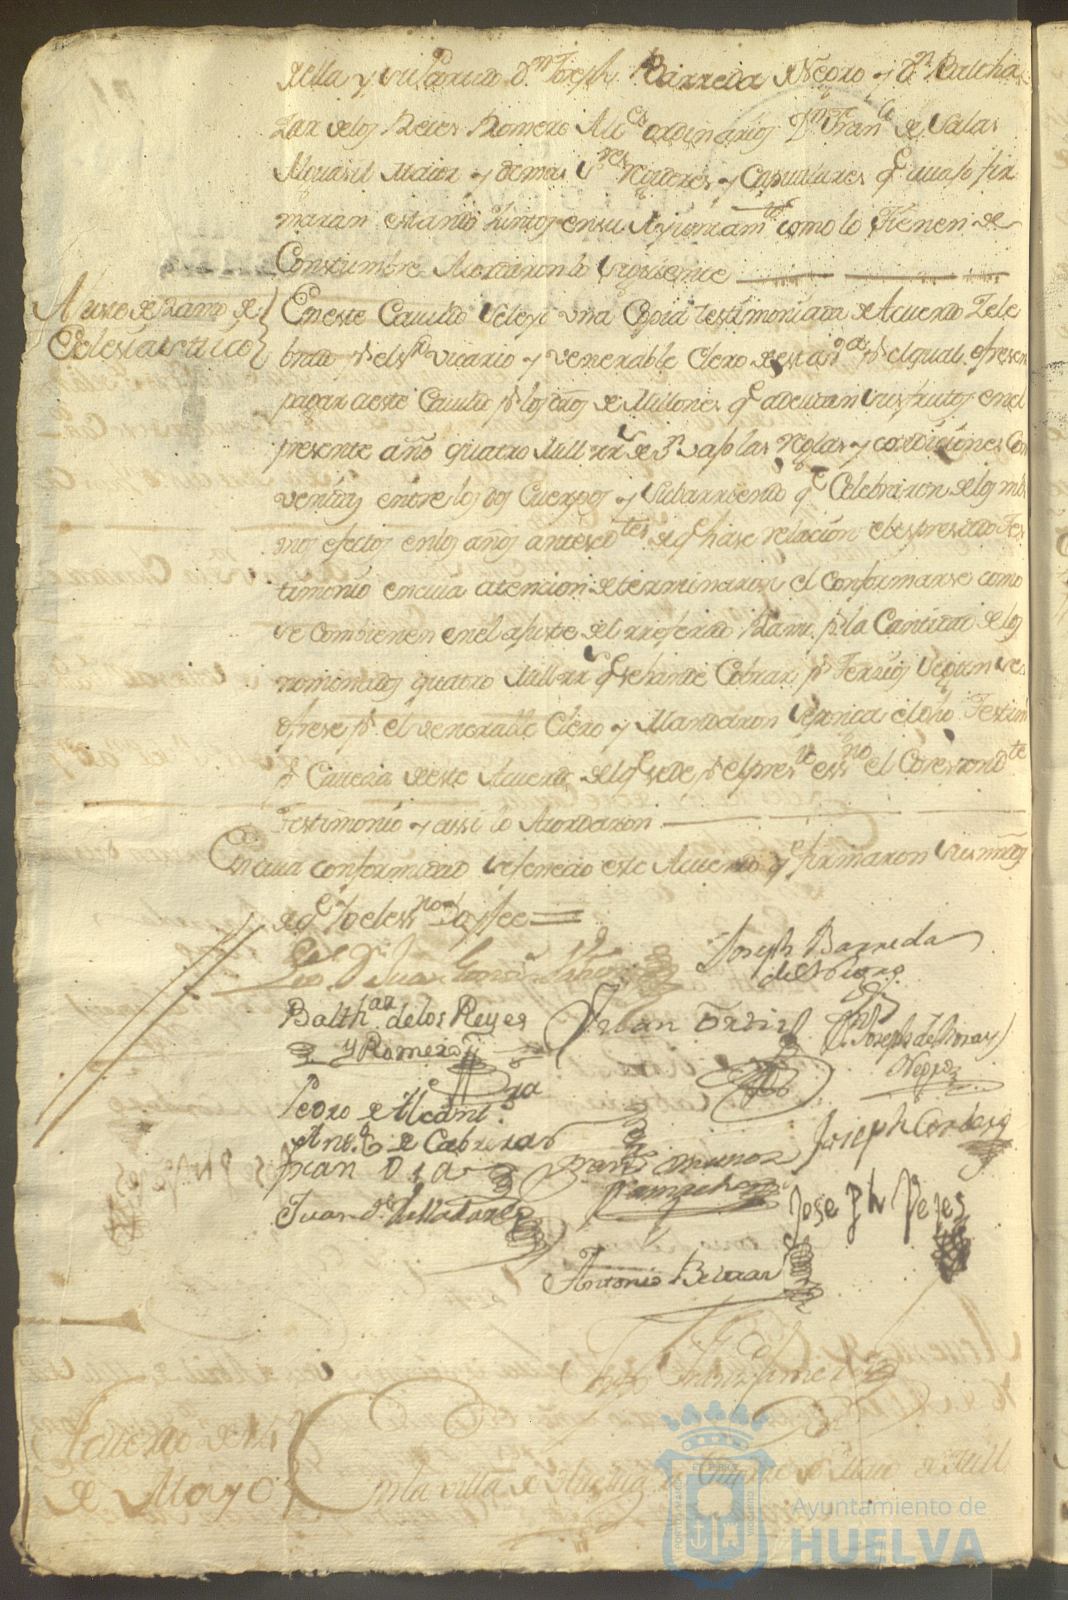 della y su Partido Dn. Joseph Barreda de Negro y Dn. Baltha
zar de los Reies Romero Alces ordinarios Dn. Franco de Salas
Alguasil Maior y demas Sres Rejidores y Capitulares q. avajo fir
maran estando juntos en su Ayuntamto como lo tienen de
Constumbre Acordaron lo siguiente
Ajuste de Ramo de
Eclesiastico
En este Cavildo se leyó una Copia testimoniada de Acuerdo Zele
brado pr. el Sr. vicario y venerable Clero de esta va pr. el qual ofresen
pagar a este Cavildo pr. los dros de Millones q. adeudan sus frutos en el
presente año quatro Mill rrs de Von vajo las Reglas y condiciones Con
venidas entre los dos Cuerpos y Subarriendo qe Celebraron de los mis
mos efectos en los años antesedtes de q. hase relación el espresado Tes
timonio en cuia atencion determinaron el conformarse como
se combienen en el ajuste del rreferido Ramo pr. la Cantidad de los
nominados quatro Mill rrs q. se han de Cobrar pr. Tersios segun se
ofrese pr. el venerable Clero y Mandaron se ponga el dho Testim
pr. Caveza de este Acuerdo del q. se de pr. el presnte essno el Corespondte
Testimonio y assi lo Acordaron
En cuia conformidad se fenecio este Acuerdo qe firmaron sus mrds
de qe Yo el essno doy fee
Lizdo Dn. Juan
Joseph Barreda
de Negro
Balthar de los Reyes
y Romero
Urban Ortiz
Dn. Joseph de
Negro
Pedro de Alcantra
Anto de Cabreras
Joseph Cordero
Fran Dias
Franco Munoz
Juan de Valladares
Joseph Reyes
Antonio Beltran
Acuerdo de
de Mayo
En la villa de Huelva
Ayuntamiento de
HUELVA